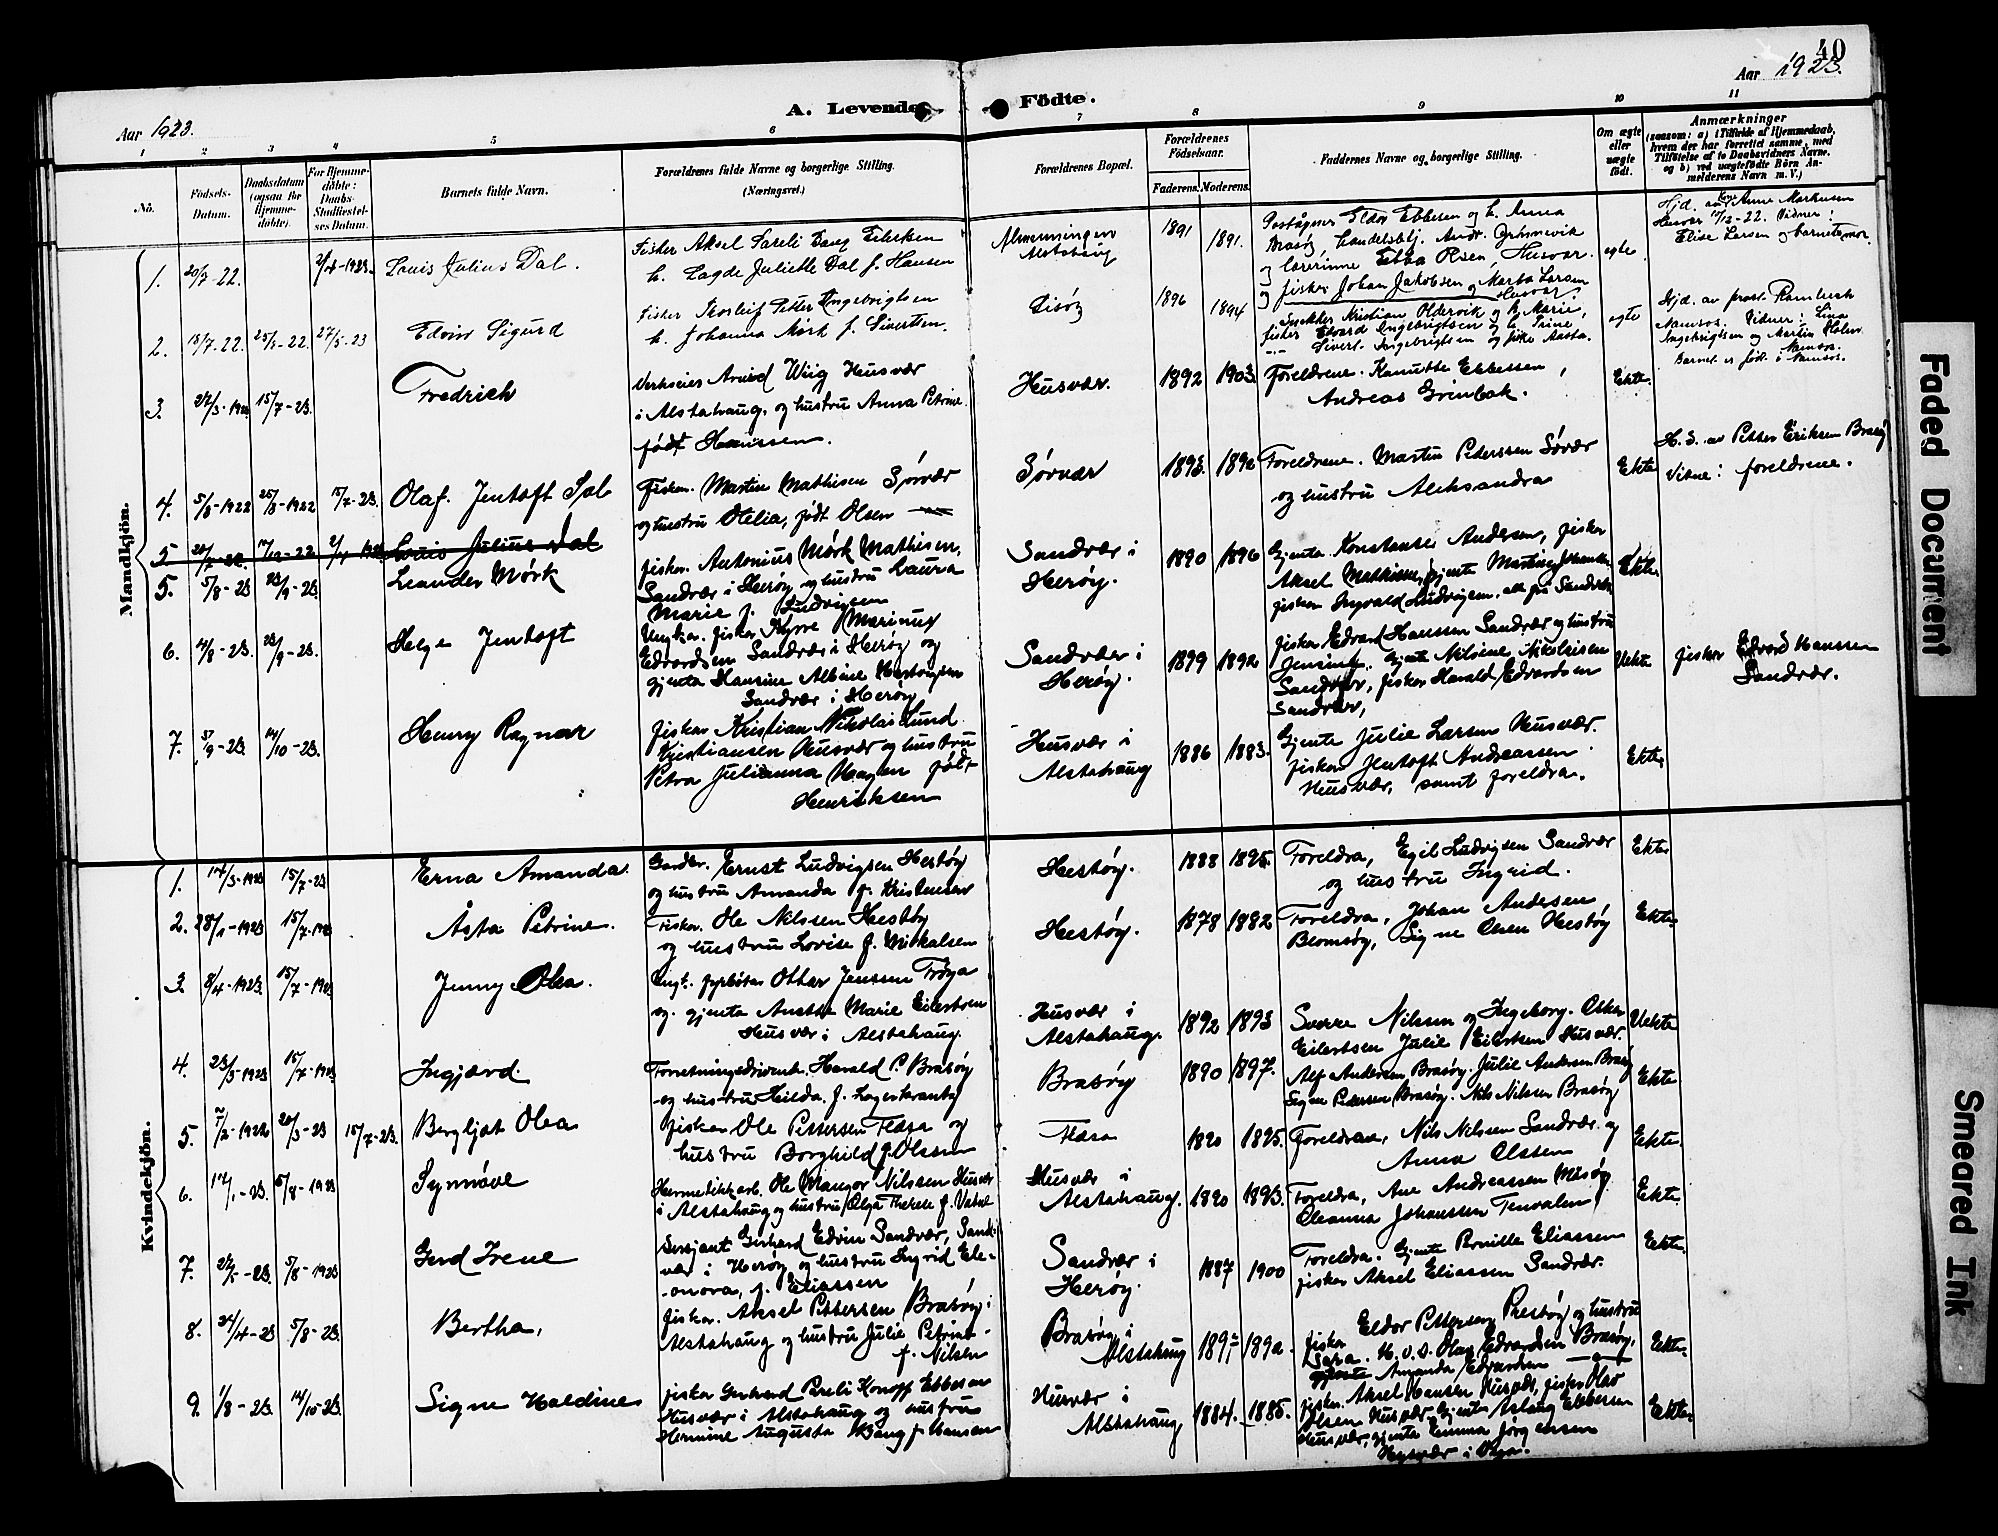 40
Aar 1923.
Aar 1923.
A. Levende Födte.
1 2 3 4 5 6 7 8 9 10 11
No.
Födsels-Datum.
Daabsdatum (ogsaa for Hjemme-döbte).
For Hjemme-döbte: Daabs-Stadfæstel-ses Datum.
Barnets fulde Navn.
Forældrenes fulde Navne og borgerlige Stilling.
(Næringsvei.)
Forældrenes Bopæl.
Forældrenes Födselsaar.
Faderens. Moderens.
Faddernes Navne og borgerlige Stilling.
Om ægte eller uægte födt.
Anmærkninger
(saasom: a) i Tilfælde af Hjemmedaab,
hvem der har forrettet samme, med
Tilföielse af to Daabsvidners Navne,
og b) ved uægtefödte Börn An-
melderens Navn m. V.)
Mandkjön.
1. 20/7-22. 2/4-1923. Louis Julius Dal.
Fisker Aksel Sareli Dal
h. Lagde Juliette Dal f. Hansen
Almenningen
Alstahaug
1891 1891.
Poståpner Eldor Ebbesen og h. Anna
Brasøy, handelsbtj. Andr.
og lærerinne Ebba Olsen, Husvær.
og fisker Johan Jakobsen og Marta Larsen
Husvær
egte
Hjd. av Anne Markussen
Husvær 17/12-22. Vidner:
Elise Larsen og barnets mor.
2. 15/7-22. 27/5-23 Edvin Sigurd
Fisker Torleif Peter Ingebrigtsen
h. Johanna Mørk f. Sivertsen.
1896 1894
Snekker Kristian Oldervik og h. Marie,
fisker Edvard Ingebrigtsen og h. Trine,
Sivert Ingebrigtsen og
egte
Hjd. av prost
Namsos. Vidner: Lina
Ingebrigtsen og Martin Holm
Barnet er född i Namsos.
3. 15/7-23. Fredrich
Verkseier Arvid Wiig Husvær
i Alstahaug. og hustru Anna Petrine
født Hanssen.
Husvær. 1892 1903.
Foreldrene. Kanutte Ebbessen,
Andreas Grimbak.
Ekte.
4. 5/8-1922 15/7-23. Olaf. Jentoft
Fisker. Martin Mathisen Sørvær
og hustru Otelia, født Olsen
Sørvær 1893. 1892
Foreldrene. Martin Pederssen Sørvær
og hustru Aleksandra
Ekte
H. D. av Petter Eriksen Brasøy
Vitne: foreldrene.
5 17/12-22 Louis Julius Dal
5. 5/8-23 23/9-23. Leander Mørk
fisker. Antonius Mørk Mathisen,
Sandvær i Herøy og hustru Laura
Marie f. Ludvigsen
Sandvær i
Herøy.
1890 1896
Gjente Konstanse Andersen, fisker
Aksel Mathisen, gjente Martine
fisker Ingvald Ludvigsen. alle fra Sandvær
Ekte.
6. 4/8-23. 23/9-23. Helge Jentoft
Ungkar. fisker Kyrre Marinus
Edvardsen Sandvær i Herøy og
gjenta Hansine Albine
Sandvær i Herøy
Sandvær i
Herøy.
1899 1892
fisker Edvard Hanssen Sandvær og hustru
Jensine. Gjente Nilsine Nikolaisen
Sandvær, fisker Harald Edvardsen
Sandvær,
Uekte
fisker Edvard Hanssen
Sandvær.
7. 5/9-23. 14/10-23. Henry Ragnar
fisker. Kristian Nikolas Lund
Kristiansen Husvær og hustru
Petra Julianna Hagen født
Henriksen
Husvær i
Alstahaug
1886 1883.
Gjente Julie Larsen Husvær.
fisker Jentoft Andreassen
Husvær, samt foreldra.
Ekte.
Kvindekjön.
1. 14/3-1923 15/7-23 Erna Amanda.
Gardbr. Ernst Ludvigsen Hestøy
og hustru Amanda f. Kristensen
Hestøy. 1888 1895.
Foreldra, Egil Ludvigsen Sandvær
og hustru Ingrid.
Ekte
2. 28/1-1923 15/7-1923 Åsta Petrine.
Fisker. Ole Nilssen Hestøy
og hustru Lovise f. Mikalsen
Hestøy. 1878 1882
Foreldra, Johan Andesen
Blomsøy, Signe Olsen Hestøy
Ekte.
3. 8/4-1923. 15/7-1923 Jenny Olea.
Ungk. fyrbøter Ottar Jenssen Frøya
og. gjenta Anette Marie Eilertsen
Husvær i Alstahaug.
Husvær i
Alstahaug.
1892 1893
Sverre Nilssen og Ingeborg.
Eilertsen Julie Eilertsen Husvær.
Uekte
4. 23/5-1923 15/7-1923 Ingjærd.
Forretningsdrivent. Harald P. Brasøy
og hustru Hilda. f. Lagerkrantz
Brasøy 1890 1897.
Alf Andersen Brasøy. Julie Andersen Brasøy
Signe Pedersen Brasøy. Nils Nilsen Brasøy
Ekte
5. 15/7-23. Bergljot Olea
fisker Ole Pettersen Flæsa og
hustru Borghild f. Olssen
Flæsa 1890 1895.
Foreldrae, Nils Nilssen Sandvær. og
Anna Olssen
Ekte.
6. 5/8-1923 Synnøve
Hermetikkarb. Ole Mangor Nilssen Husvær
i Alstahaug og hustru Olga Therese f.
Husvær i
Alstahaug. 1890 1893.
Foreldra, Ane Andreassen Måsøy
Oleanna Johanssen Tenvalen
Ekte.
7. 5/8-1923 Gerd Irene
Sersjant Gerhard Edvin Sandvær, Sand-
vær i Herøy og hustru Ingrid Ele-
onora, f. Eliassen
Sandvær i
Herøy.
1887 1900
Foreldra. Gjente Pernille Eliassen
fisker Aksel Eliassen Sandvær.
Ekte.
8. 24/4-23 5/8-23. Bertha,
fisker. Aksel Pettersen Brasøy i
Alstahaug og hustru Julie Petrine
f. Nilsen
Brasøy i
Alstahaug
1892.
Eldor Pettersen Prestøy og hustru
fisker Sara. H. v. d. Olav Edvardsen Brasøy,
gjente Amanda Edvardsen
Ekte.
9. 1/8-23 14/10-23. Signe Haldine
fisker Gerhard Pareli Konopf Ebbesen
Husvær i Alstahaug og hustru
Hermine Augusta Wang f. Hansen
Husvær i
Alstahaug
1884. 1885.
fisker. Aksel Hansen Husvær, fisker Olav
Olsen Husvær. Gjente Aslaug Ebbesen
Husvær, gjente Emma Jørgensen
Husvær i Vega.
Ekte.
Faded Document
Smeared Ink